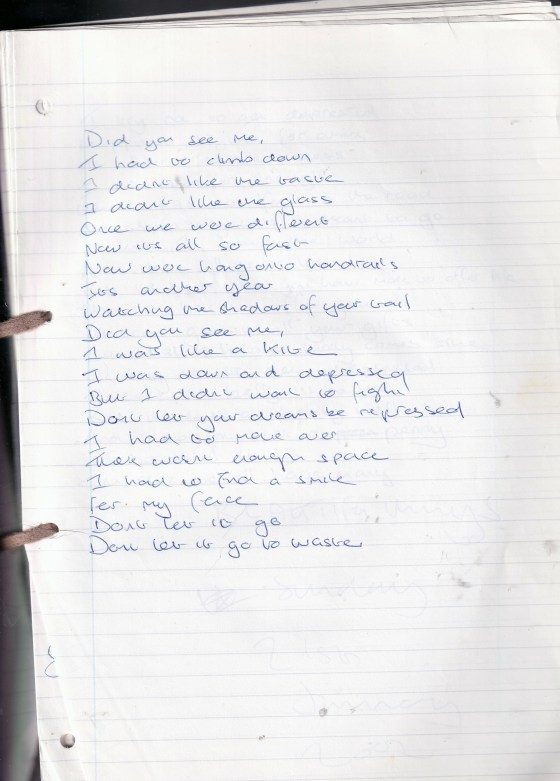 Did you see me,
I had to climb down
I didnt like the taste
I didnt like the glass
Once we were different
Now its all so fast
Now were hang onto handrails
Its another year
Watching the shadows of your trail
Did you see me,
I was like a kite
I was down and depressed
But I didnt want to fight
Dont let your dreams be repressed
I had to move over
There wasnt enough space
I had to find a smile
For my face
Dont let it go
Dont let it go to waste